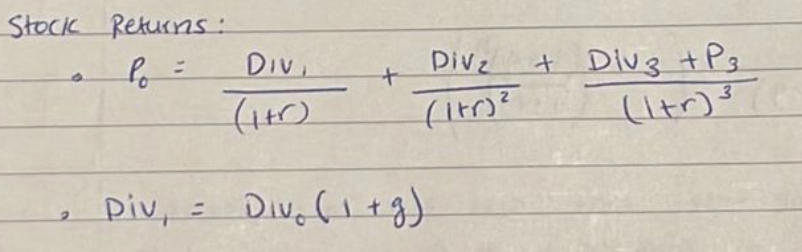 Stock Returns:
• P₀ = Div₁/(1+r) + Div₂/(1+r)² + Div₃ + P₃/(1+r)³
• Div₁ = Div₀(1+g)